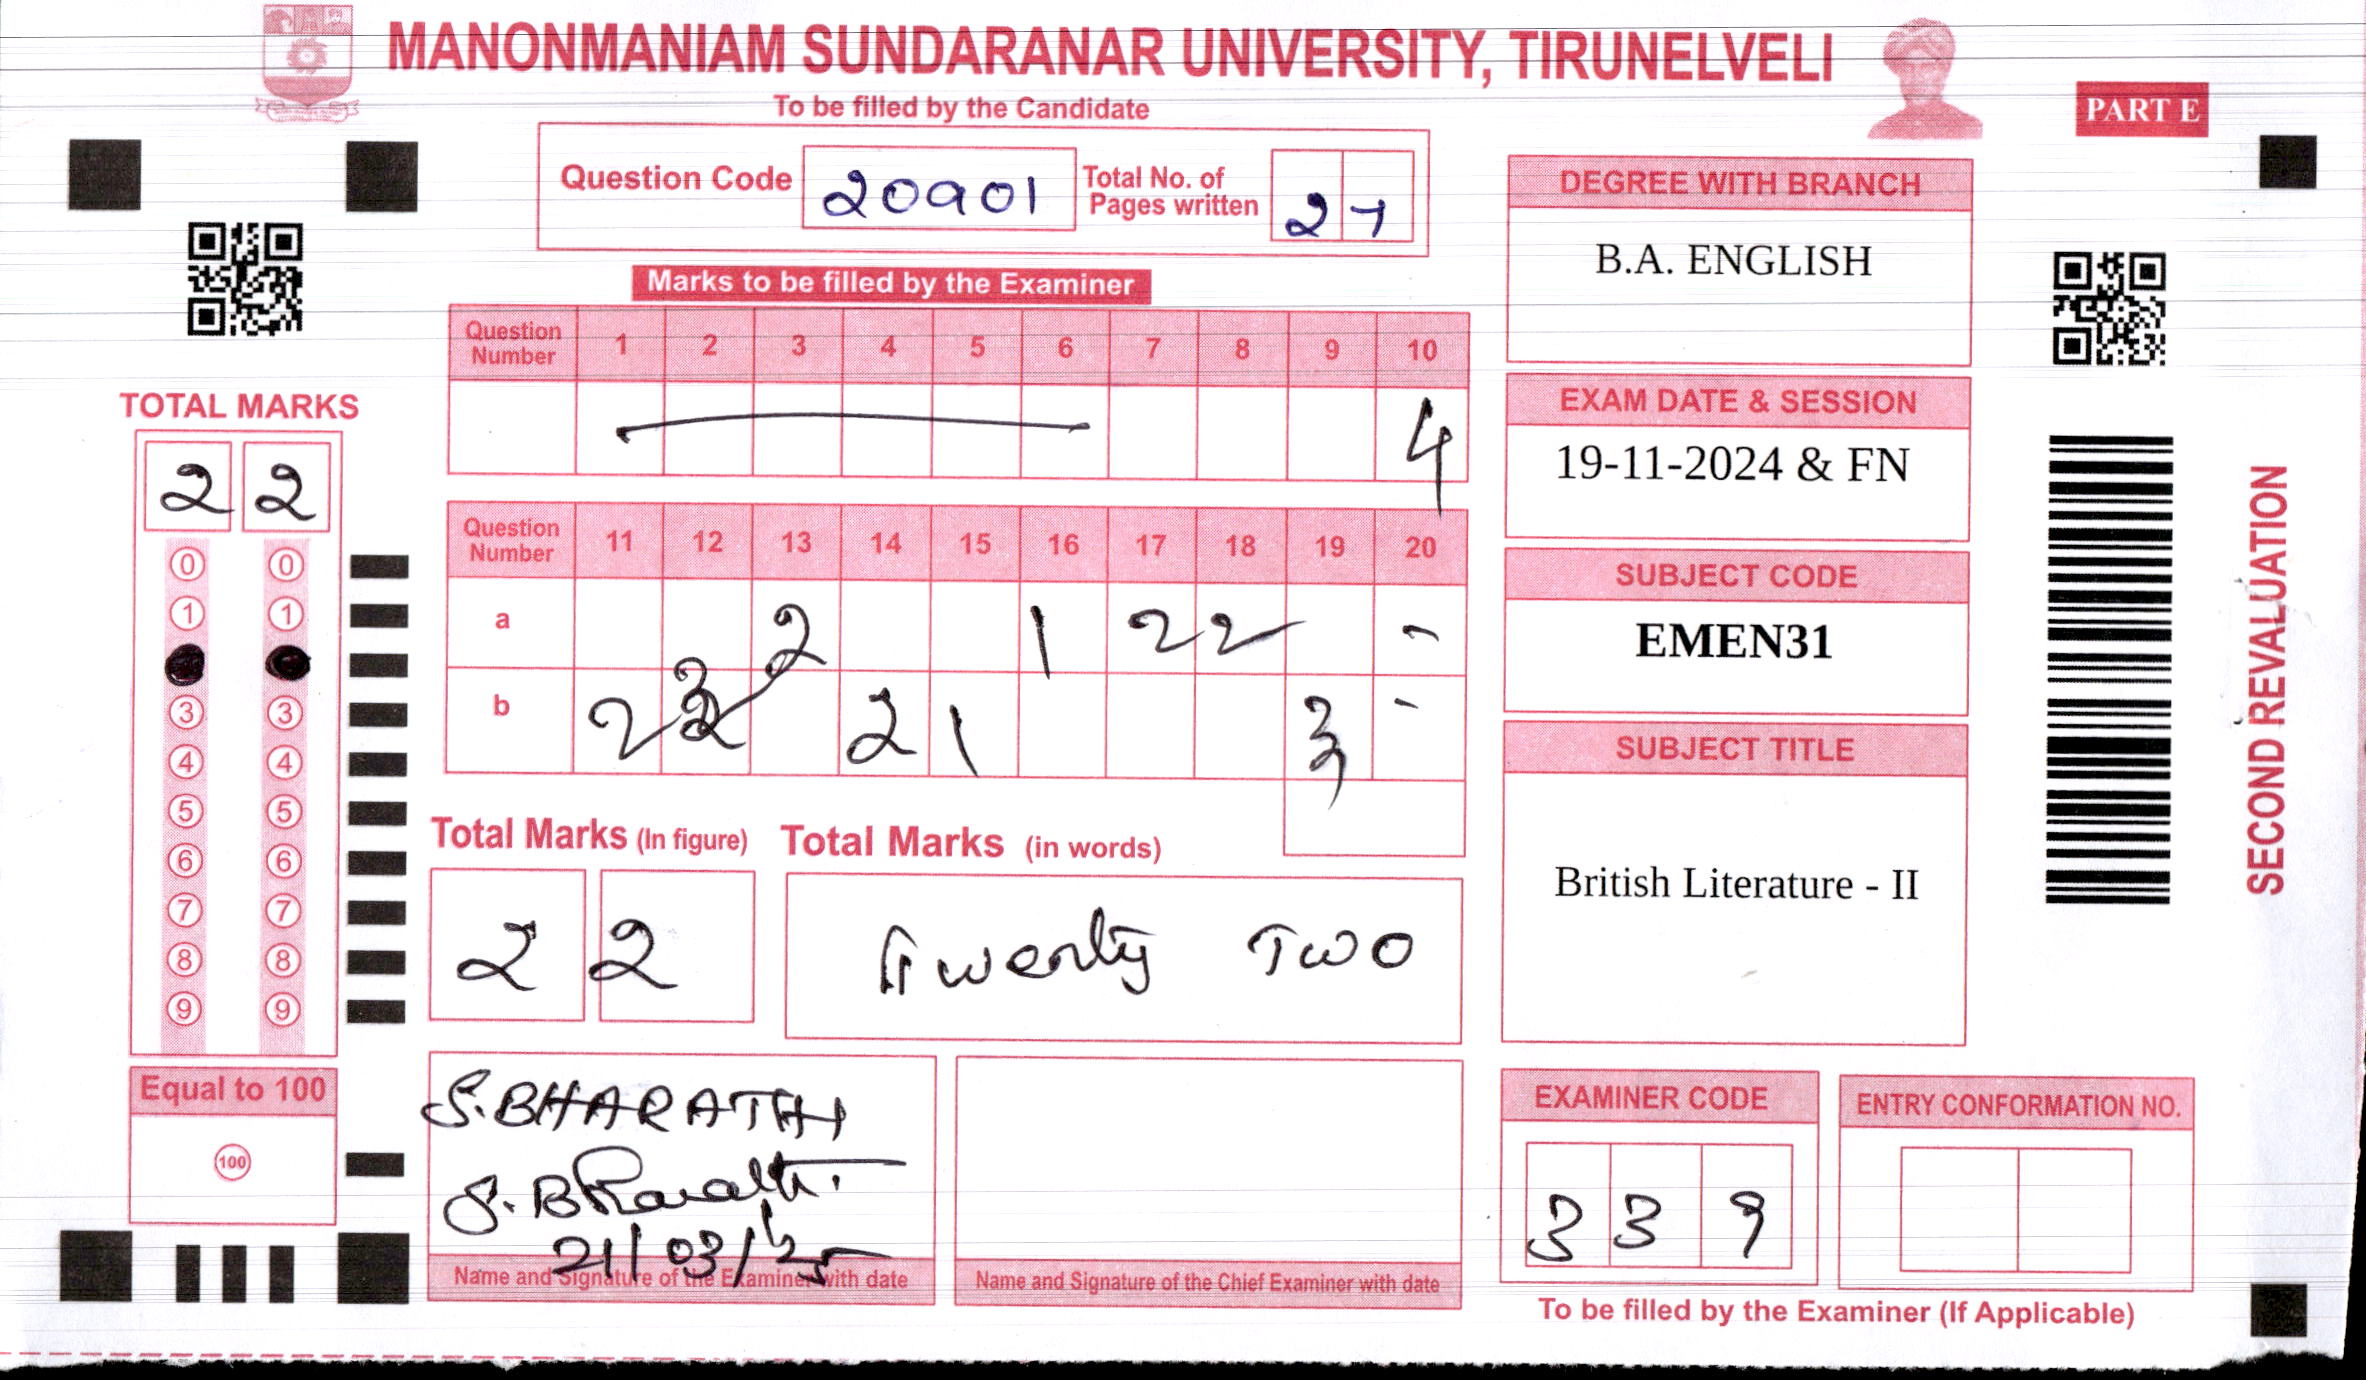 MANONMANIAM SUNDARANAR UNIVERSITY, TIRUNELVELI
To be filled by the Candidate
PART E
Question Code 20901 Total No. of Pages written 27
Marks to be filled by the Examiner
Question Number 1 2 3 4 5 6 7 8 9 10
4
Question Number 11 12 13 14 15 16 17 18 19 20
a 2 1 2 2 -
b 2 2 2 1 3 -
Total Marks (In figure) Total Marks (in words)
2 2 Twenty Two
S.BHARATHI
S. Bharathi
21/03/25
Name and Signature of the Examiner with date
Name and Signature of the Chief Examiner with date
TOTAL MARKS
2 2
0 0
1 1
3 3
4 4
5 5
6 6
7 7
8 8
9 9
Equal to 100
100
DEGREE WITH BRANCH
B.A. ENGLISH
EXAM DATE & SESSION
19-11-2024 & FN
SUBJECT CODE
EMEN31
SUBJECT TITLE
British Literature - II
EXAMINER CODE
3 3 9
ENTRY CONFORMATION NO.
To be filled by the Examiner (If Applicable)
SECOND REVALUATION